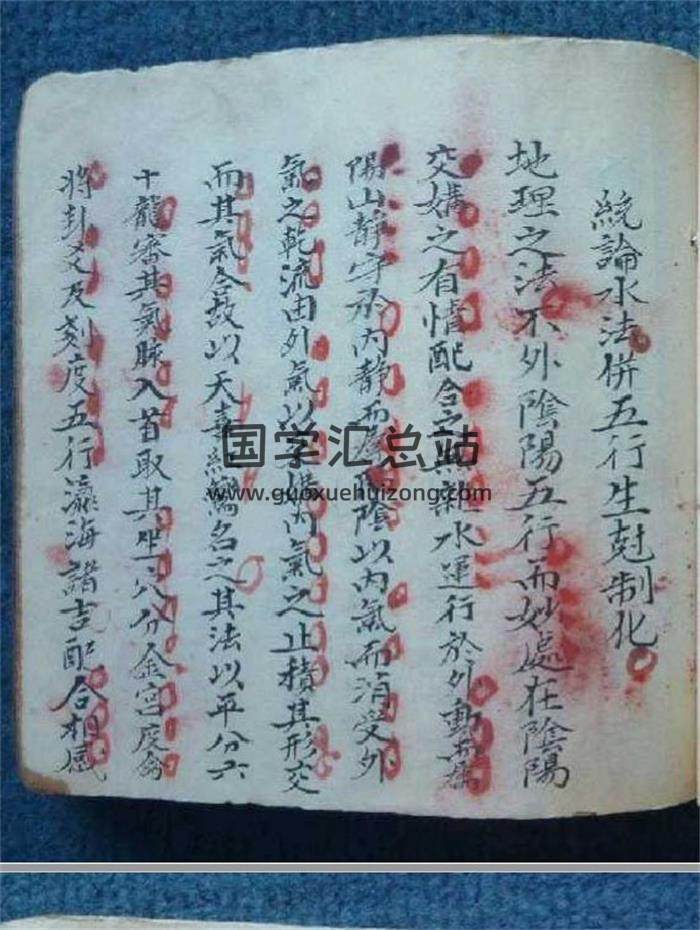 統論水法併五行生尅制化
地理之法不外陰陽五行而妙處在陰陽
交媾之有情配合之水運行於外動而為
陽山靜守於內靜而為陰以內氣而消受外
氣之乾流由外氣以內氣之止積其形交
而其氣合故以天喜經名之其法以平分六
十龍審其氣脉入首取其坐穴分金宮度
將卦爻及刻度五行瀛海諸吉配合相感
国学汇总站
www.guoxuehuizong.com